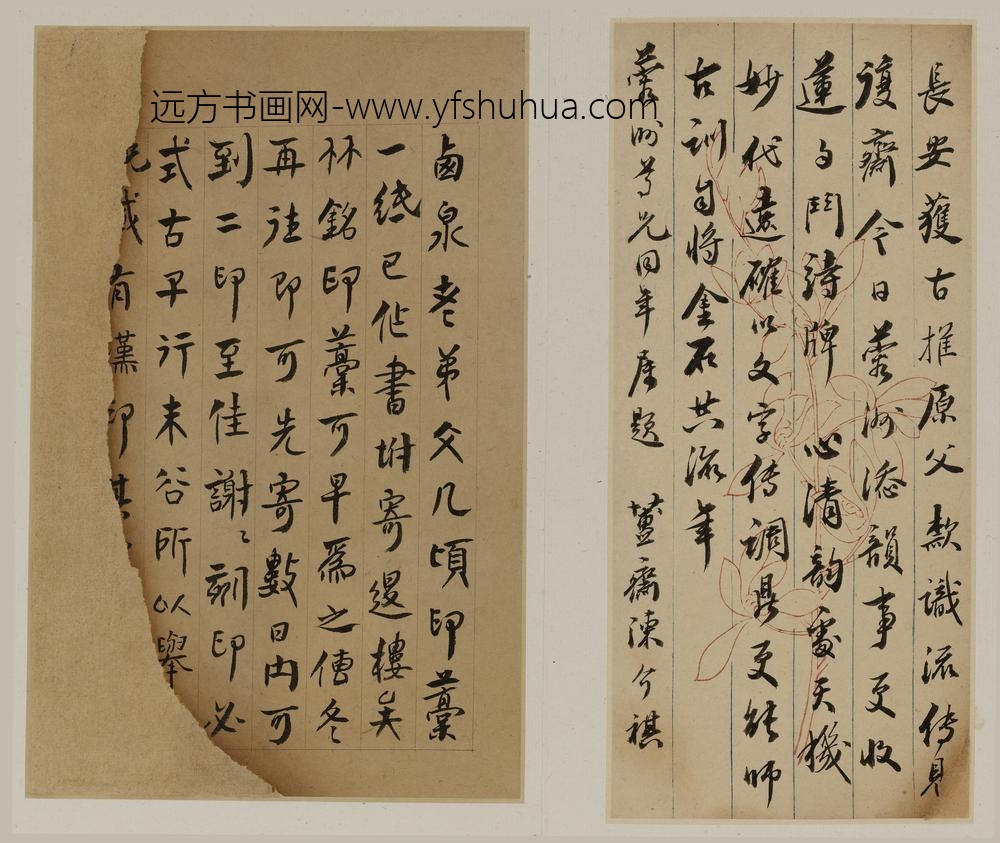 远方书画网-www.yfshuhua.com
長安獲古推原父款識流傳見
護齋今日蓉洲添韻事更收
蓮勺鬥鑄牌心清韵處天機
妙代遠確以文字傳調鼎更能師
古訓自將金石共流年
蓉洲尊兄同年 屬題 簠齋陳介祺
鹵泉老弟父几頃印藁
一綫已作書坿寄邊樓矣
林銘印藁可早為之傳冬
再往即可先寄數日內可
到二印至佳謝〻刻印必
式古乎行未谷所以舉
有漢印其